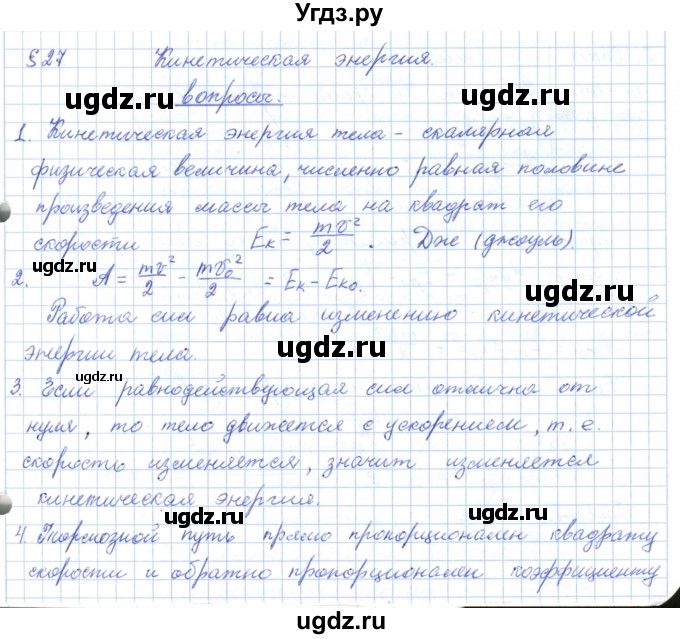 Угдз.ру
§27 Кинетическая энергия.
ugdz.ru вопросы. ugdz.ru
1. Кинетическая энергия тела - скалярная
физическая величина, численно равная половине
произведения массы тела на квадрат его
скорости Eк = mv²/2. Дж (джоуль).
ugdz.ru
2. A = mv²/2 - mv₀²/2 = Eк - Eк₀.
Работа сил равна изменению кинетической
энергии тела. ugdz.ru
ugdz.ru
3. Если равнодействующая сил отлична от
нуля, то тело движется с ускорением, т.е.
ugdz.ru
скорость изменяется, значит изменяется
кинетическая энергия.
ugdz.ru ugdz.ru
4. Тормозной путь прямо пропорционален квадрату
скорости и обратно пропорционален коэффициенту
ugdz.ru